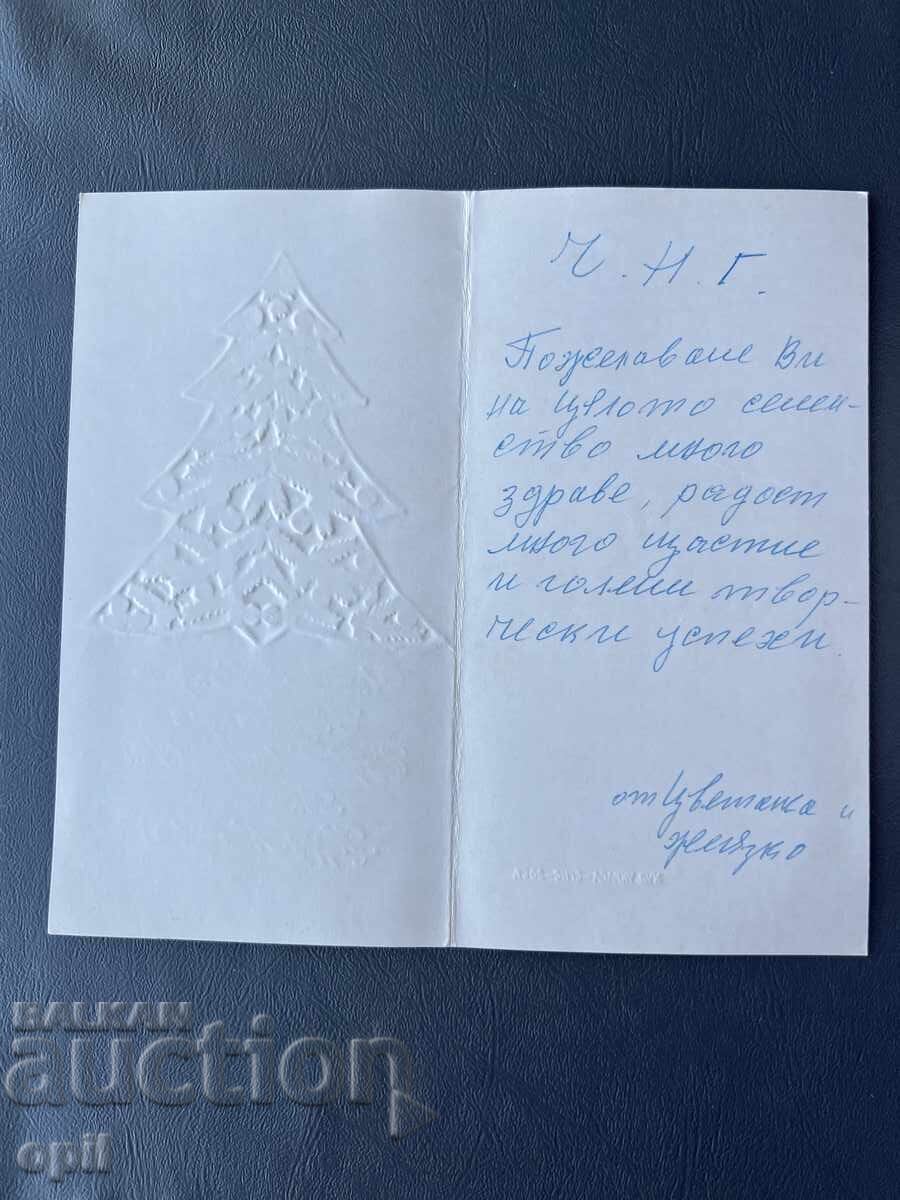 Ч. Н. Г.
Пожелаваме Ви
на цялото семей-
ство много
здраве, радост
много щастие
и големи твор-
чески успехи.
от Цветанка и
Желязко
BALKAN
auction
opil